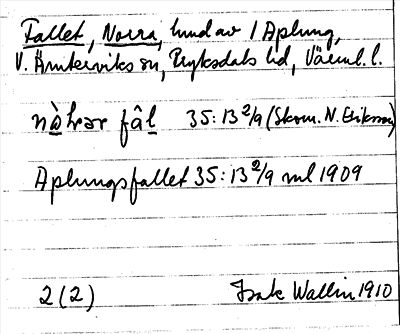 Fallet, Norra, hmd av 1 Aplung,
V. Ämterviks sn, Fryksdals hd, Värml. l.
nàhrər fål 35:13 2/9 (Skom. N. Eriksson)
Aplungsfallet 35:13 2/9 ml 1909
2(2) Isak Wallin 1910